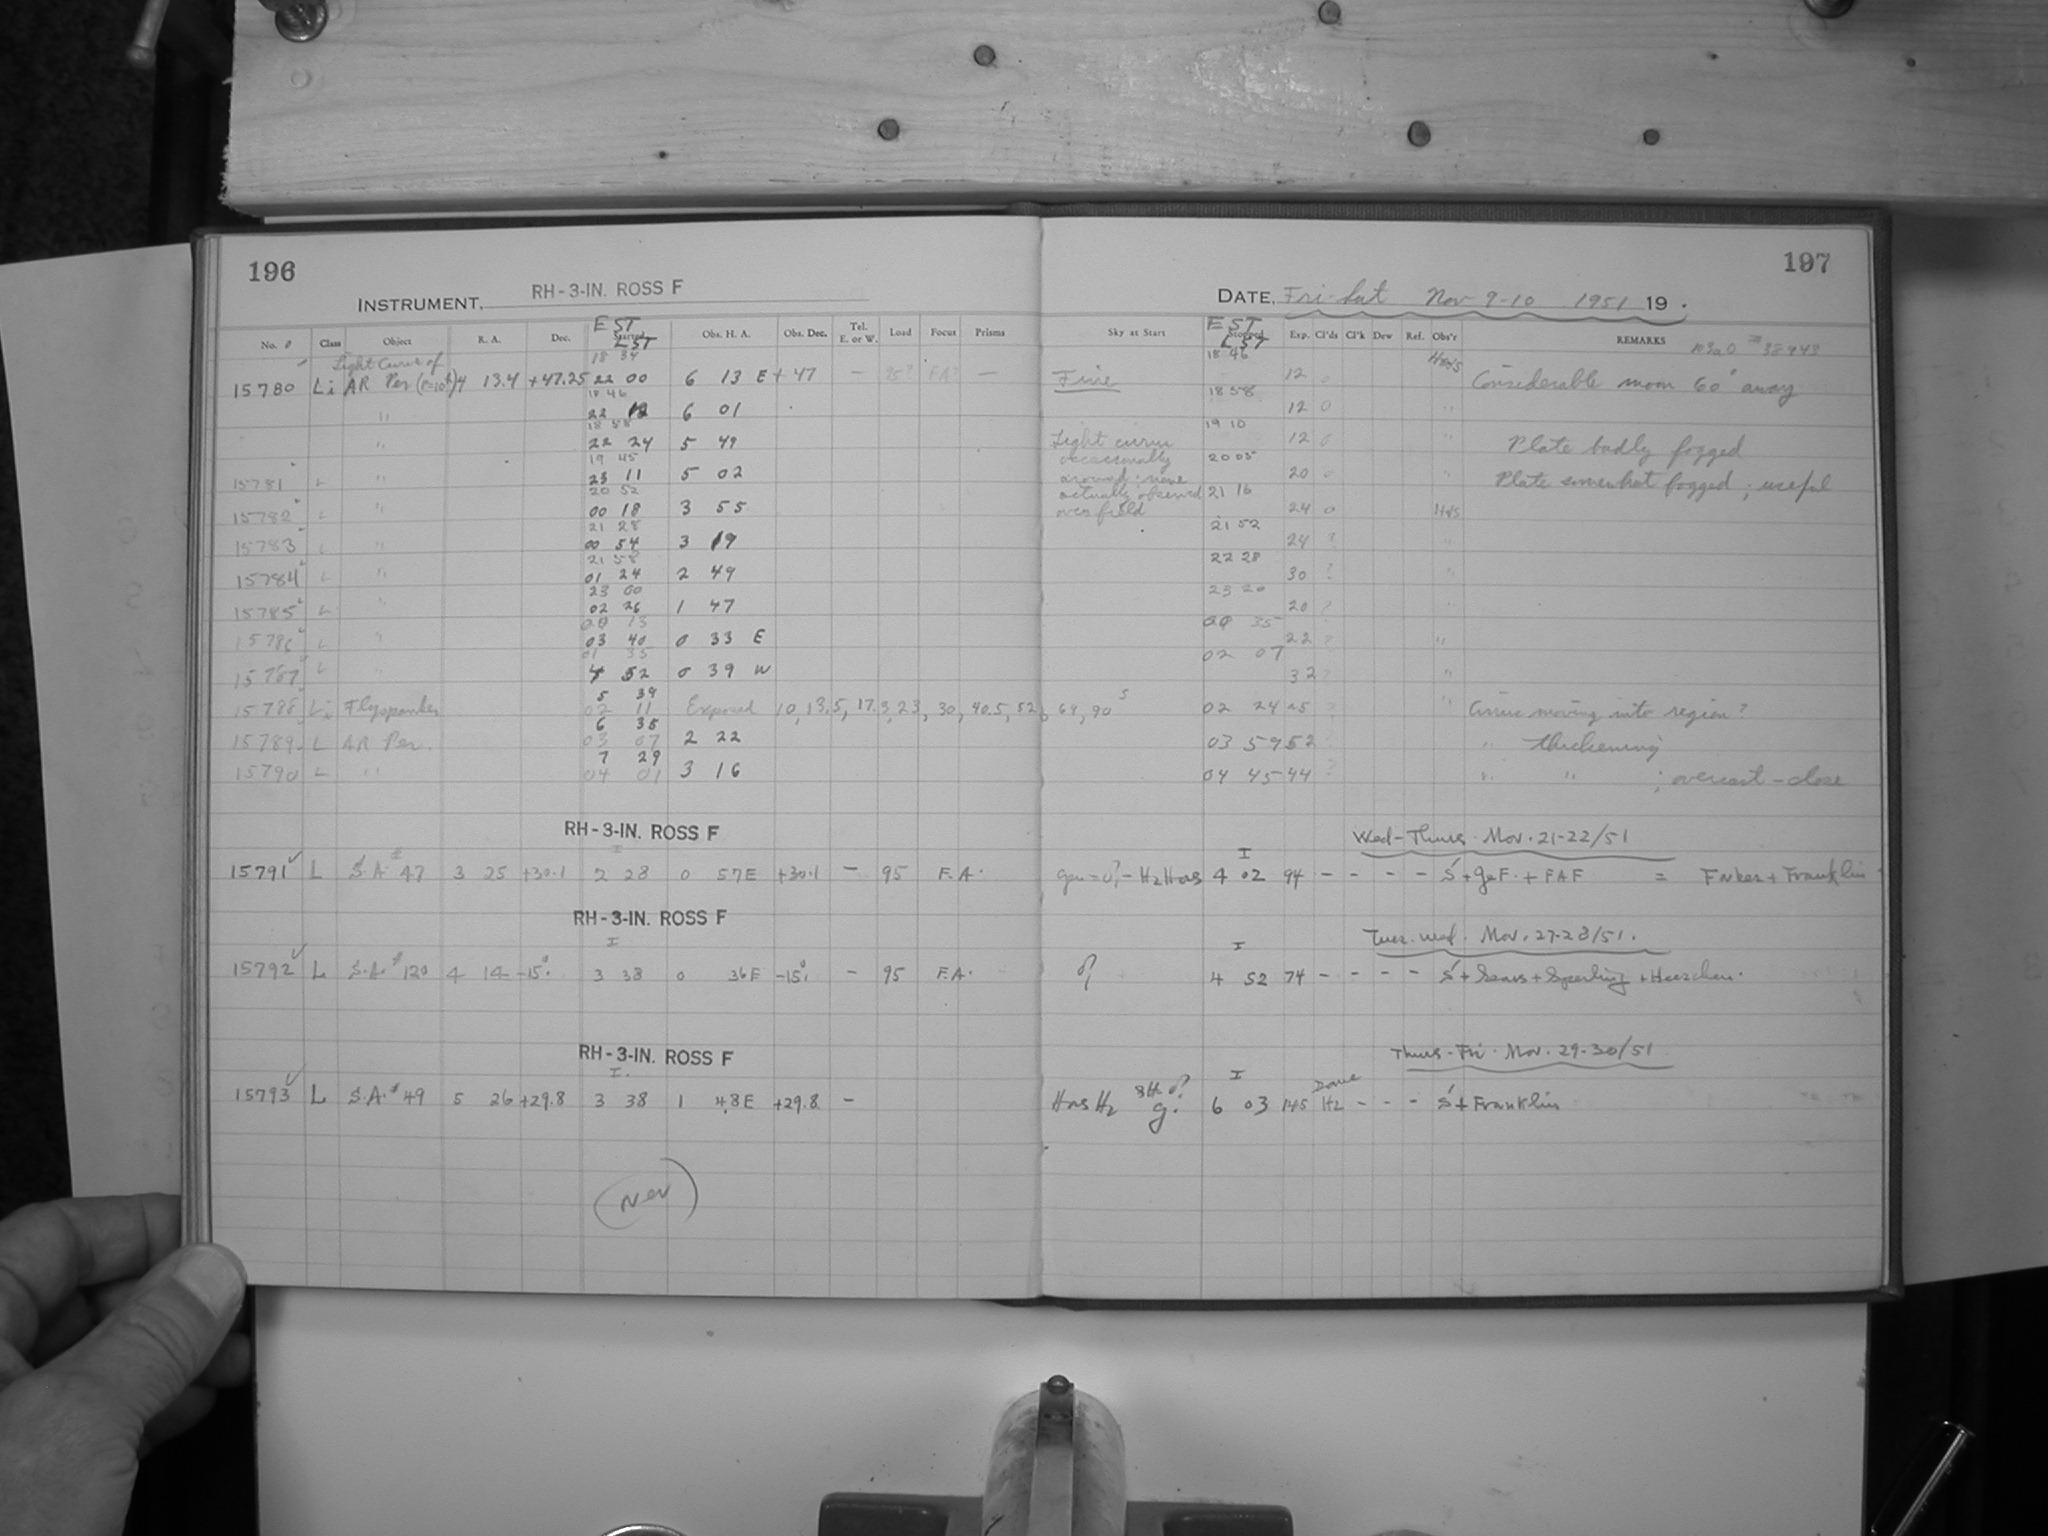 196
197
INSTRUMENT, RH-3-IN. ROSS F
DATE, Fri-Sat Nov 9-10 1951 19 .
No. Class Object R. A. Dec. EST Started LST Obs. H. A. Obs. Dec. Tel. E. or W. Load Focus Prisms Sky at Start EST Stopped LST Exp. Cl'ds Cl'k Dew Ref. Obs'r REMARKS 103aO # 38943
Light Curve of 18 34 18 46
15780 Li AR Per 4 13.4 +47.25 22 00 6 13 E +47 — 95? FA? — Fine 12 0 Considerable moon 60° away
18 46 18 58
" 22 12 6 01 12 0 "
18 58 19 10
" 22 24 5 49 Light cirrus 12 0 " Plate badly fogged
19 45 occasionally 20 05
15781 L " 23 11 5 02 around; none 20 0 Plate somewhat fogged; useful
20 52 actually observed 21 16
15782 L " 00 18 3 55 over field 24 0
21 28 21 52
15783 L " 00 54 3 19 24 ? "
21 58 22 28
15784 L " 01 24 2 49 30 ? "
23 00 23 20
15785 L " 02 26 1 47 20 ?
00 13 00 35
15786 L " 03 40 0 33 E 22 ? "
01 35 02 07
15787 L " 4 52 0 39 W 32 ? "
5 39
15788 Li Flyspanker 02 11 Exposed 10, 13.5, 17.3, 23, 30, 40.5, 52, 69, 90 s 02 24 ? " Cirrus moving into region?
6 35
15789 L AR Per. 03 07 2 22 03 59 52 " thickening
7 29
15790 L " 04 01 3 16 04 45 44 ? " " ; overcast - close
RH-3-IN. ROSS F Wed-Thurs. Nov. 21-22/51
15791 L S.A. # 47 3 25 +30.1 2 28 0 57E +30.1 — 95 F.A. 4 02 94 - - - - S + + FAF = + Franklin
RH-3-IN. ROSS F Tues. Wed. Nov. 27-28/51.
15792 L S.A. # 120 4 14 -15° 3 38 0 36E -15° — 95 F.A. 4 52 74 - - - - S + Sears + Sperling + Heeschen.
RH-3-IN. ROSS F Thurs-Fri. Nov. 29-30/51
15793 L S.A. # 49 5 26 +29.8 3 38 1 48E +29.8 — 6 03 145 Hz - - - S + Franklin
Nov